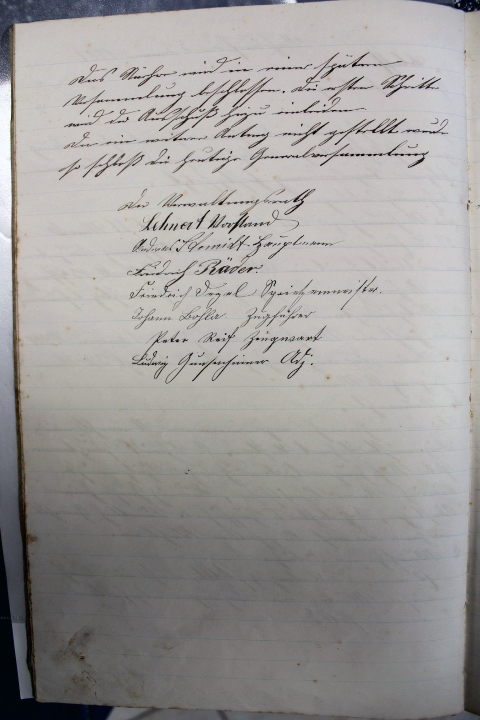 Das Nähere wird in einer spätern
Versammlung beschlossen. Die ersten Schritte
wird der Ausschuß hiezu einleiten
Da ein weiterer Antrag nicht gestellt wurde
so schloß die heutige Generalversammlung
Der Verwaltungsrath
Lehnert Vorstand
Andreas Schmidt Hauptmann
Friedrich Räder
Friedrich
Johann Bohla Zugführer
Peter Reif Zeugwart
Ludwig Gunsenheimer Adj.